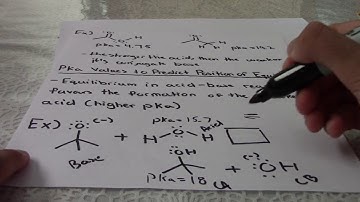 Ex)
pka = 4.75 pka = 19.2
- The stronger the acid, the weaker
its conjugate base
Pka Values to Predict Position of Equ
- Equilibrium in acid-base rea
favors the formation of the
acid (higher pka)
Ex) :Ö: (-) pka = 15.7
+ H O H Acid
Base
:ÖH (-)
+ :Ö H
pka = 18 CA CB